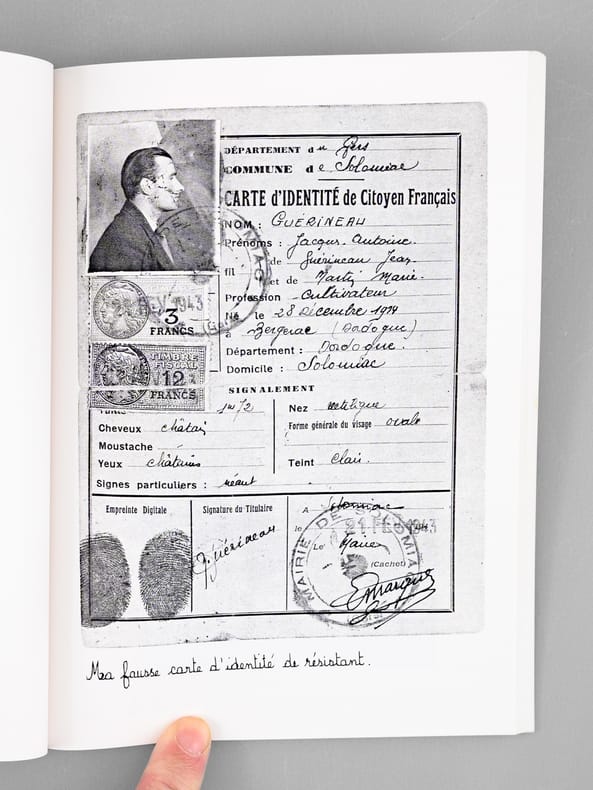 DÉPARTEMENT du Gers
COMMUNE de Solomiac
CARTE d'IDENTITÉ de Citoyen Français
NOM : GUÉRINEAU
Prénoms : Jacques Antoine
fil de Guérineau Jean
et de Martin Marie
Profession Cultivateur
Né le 28 Décembre 1924
à Bergerac (Dordogne)
Département : Dordogne
Domicile : Solomiac
FEV 1943
3
FRANCS
TIMBRE
FISCAL
12
FRANCS
SIGNALEMENT
Taille 1m72
Cheveux châtain
Moustache
Yeux châtains
Signes particuliers : néant
Nez
Forme générale du visage ovale
Teint clair
Empreinte Digitale
Signature du Titulaire
J. Guérineau
A Solomiac
le 21 FEV 1943
Le Maire
(Cachet)
MAIRIE DE SOLOMIAC
Ma fausse carte d'identité de résistant.